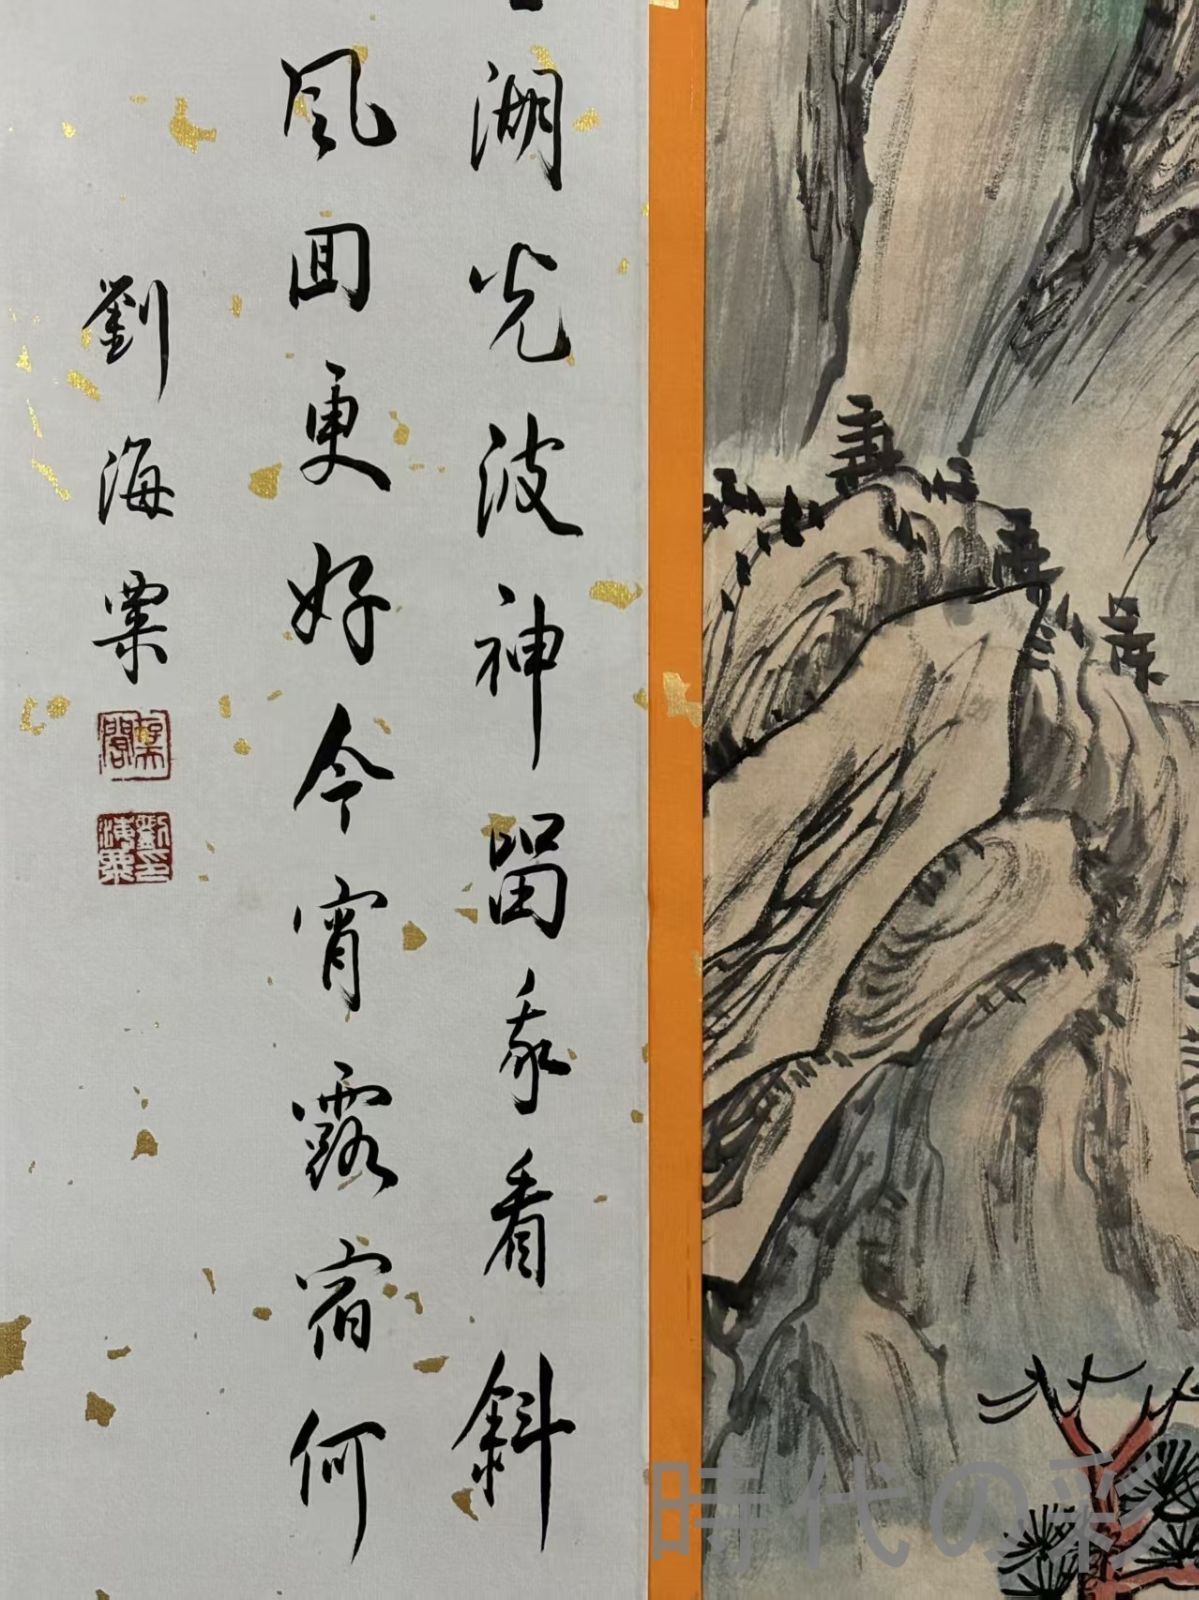 湖光波神留我看斜
風回更好今宵露宿何
劉海粟
存天閣
劉海粟印
時代の彩